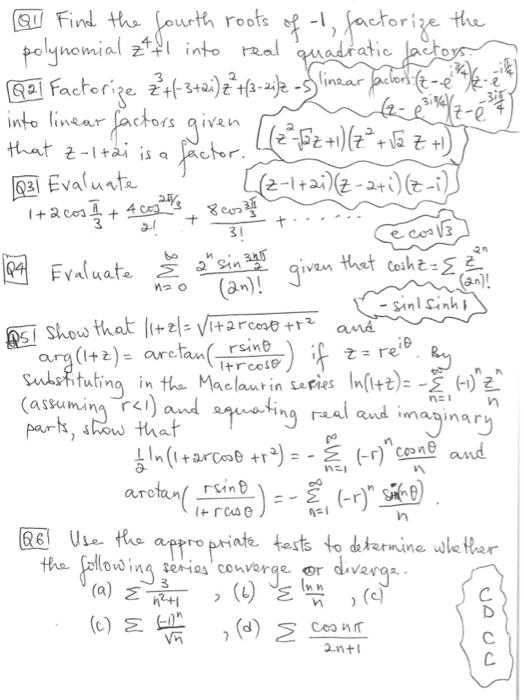 Q1 Find the fourth roots of -1, factorize the
polynomial z⁴+1 into real quadratic factors.
linear factors: (z-e^{iπ/4})(z-e^{-iπ/4})
(z-e^{3iπ/4})(z-e^{-3iπ/4})
(z²-√2z+1)(z²+√2 z+1)
Q2 Factorize z³+(-3+2i)z²+(3-2i)z-5
into linear factors given
that z-1+2i is a factor.
(z-1+2i)(z-2+i)(z-i)
Q3 Evaluate
1+2cos π/3 + 4cos 2π/3 / 2! + 8cos 3π/3 / 3! + ......
e cos√3
Q4 Evaluate ∞ Σ n=0 2ⁿ sin 3nπ/2 / (2n)! given that cosh z = Σ z²ⁿ/(2n)!
- sin1 sinh1
Q5 Show that |1+z|=√(1+2rcosθ+r²) and
arg(1+z)= arctan(rsinθ/(1+rcosθ)) if z=re^{iθ}. By
substituting in the Maclaurin series ln(1+z)= -∞ Σ n=1 (-1)ⁿ zⁿ/n
(assuming r<1) and equating real and imaginary
parts, show that
½ ln(1+2rcosθ+r²) = - ∞ Σ n=1 (-r)ⁿ cosnθ/n and
arctan(rsinθ/(1+rcosθ)) = - ∞ Σ n=1 (-r)ⁿ sin(nθ)/n.
Q6 Use the appropriate tests to determine whether
the following series converge or diverge.
(a) Σ 3/(n²+1), (b) Σ ln n/n, (c)
(c) Σ (-1)ⁿ/√n, (d) Σ cos nπ/(2n+1)
C
D
C
C